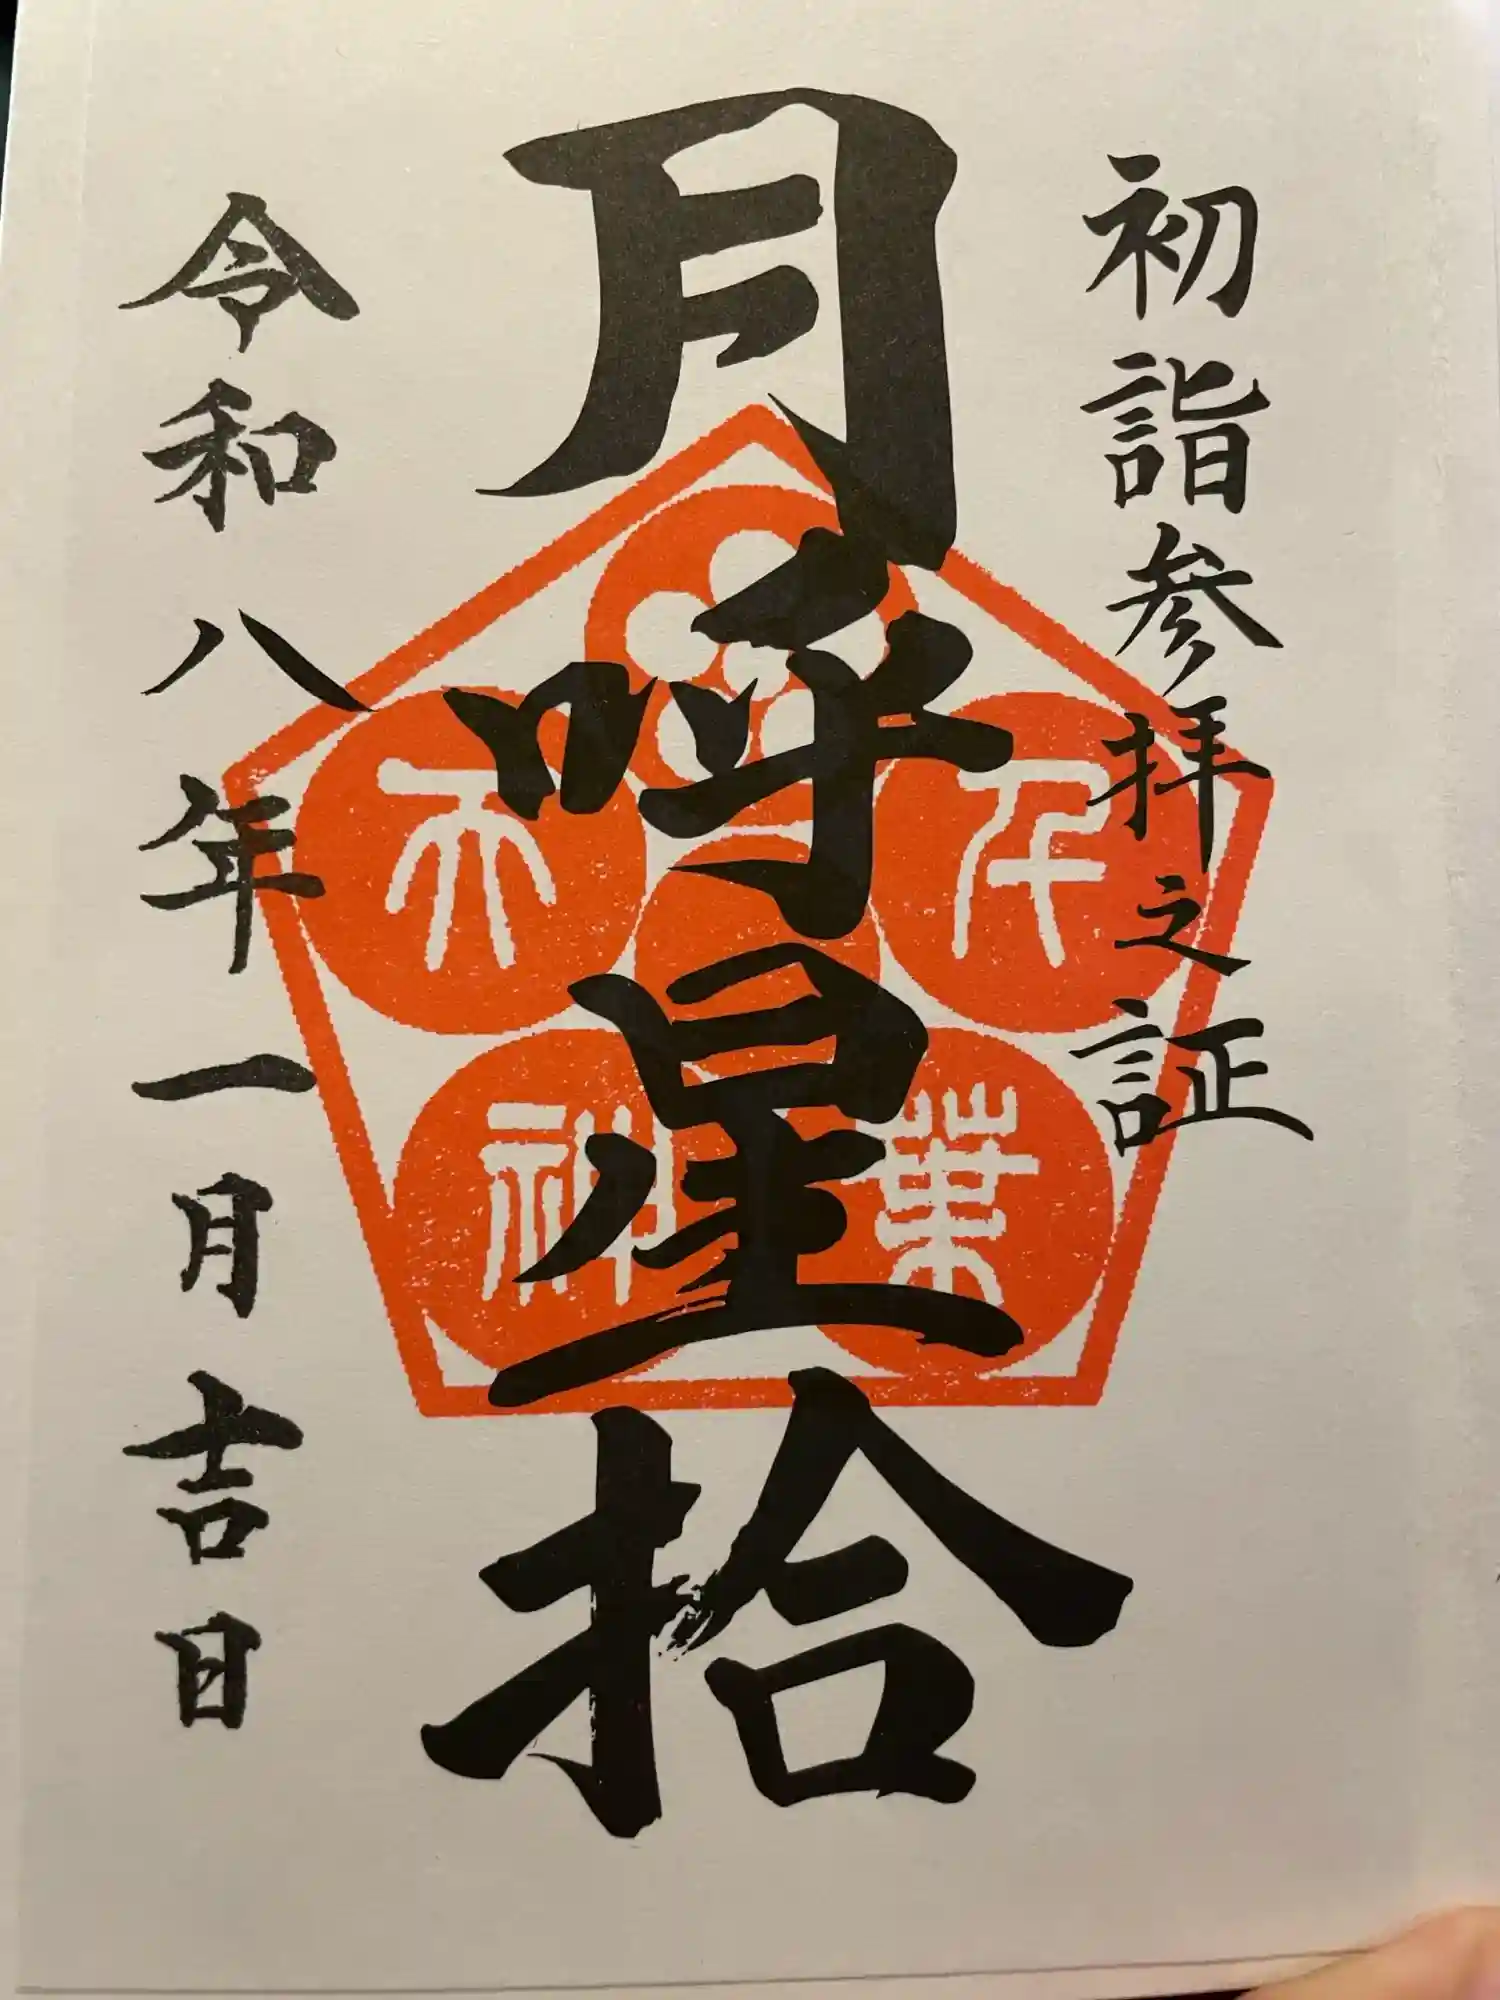 初詣参拝之証
月呼星拾
千葉
天神
令和八年一月吉日